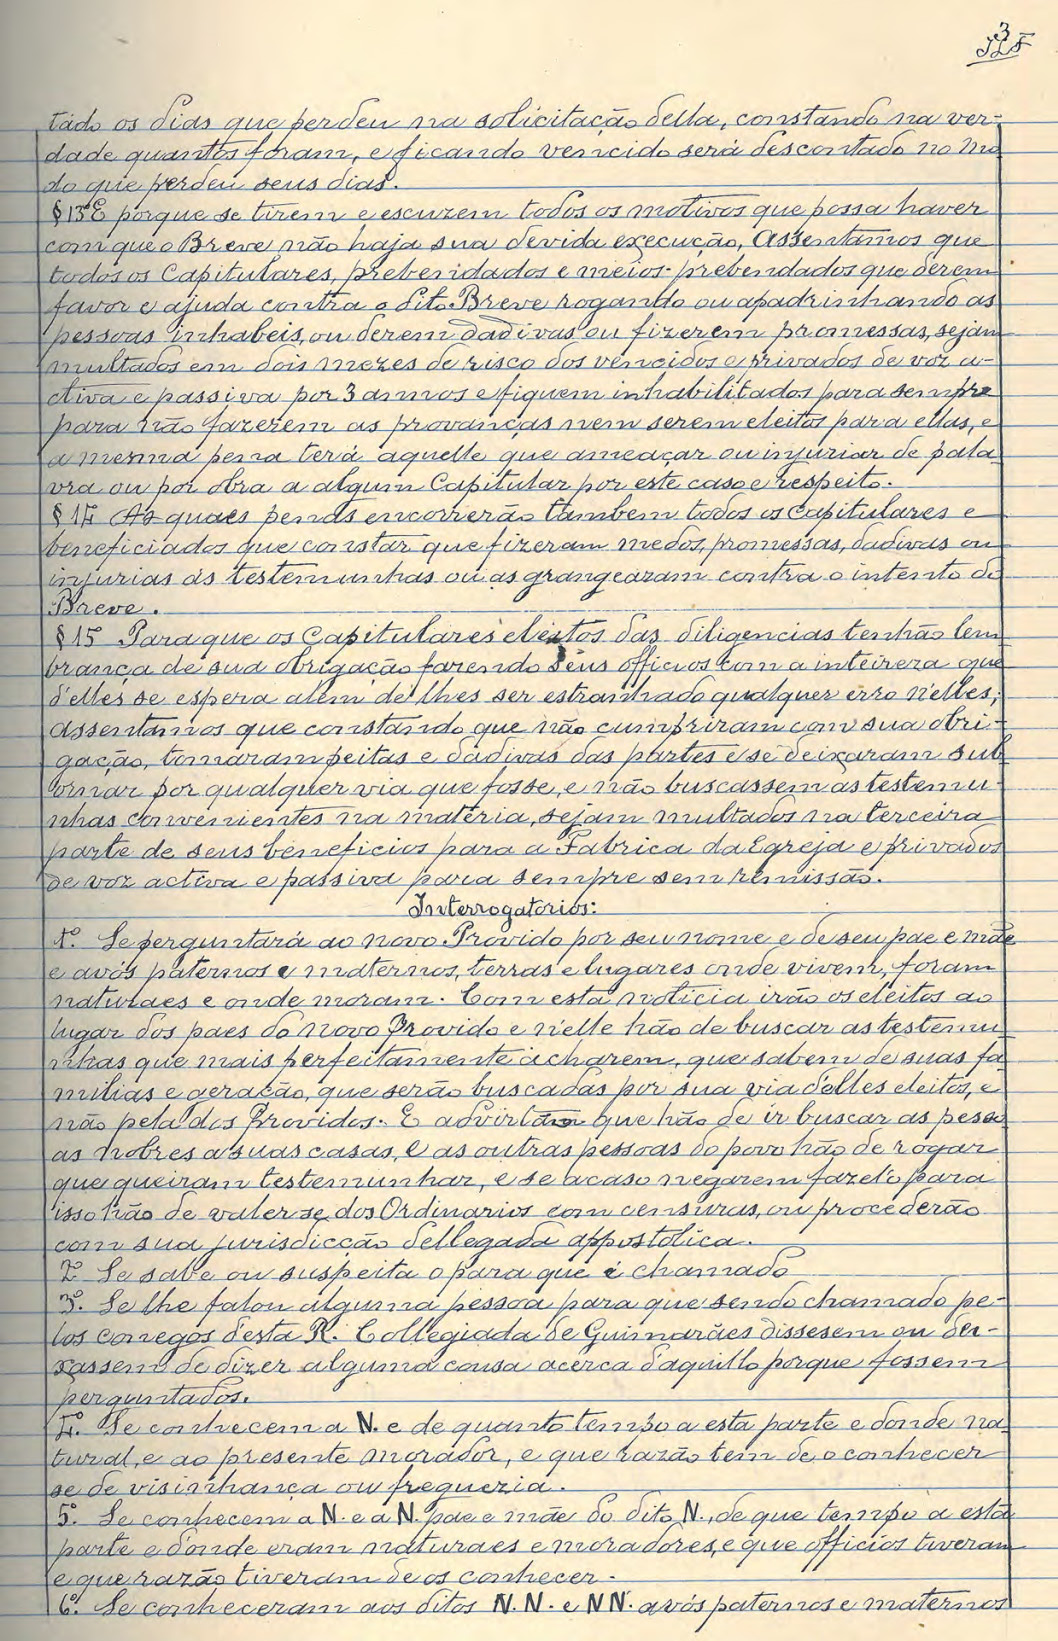 3
tado os dias que perdeu na solicitação della, constando na ver-
dade quantos foram, e ficando vencido será descontado no mo
do que perdeu seus dias.
§ 13 E porque se tirem e escuzem todos os motivos que possa haver
com que o Breve não haja sua devida execução, Assentamos que
todos os Capitulares, prebendados e meios-prebendados que derem
favor e ajuda contra o dito Breve rogando ou apadrinhando as
pessoas inhabeis, ou derem dadivas ou fizerem promessas, sejam
multados em dois mezes de risco dos vencidos e privados de voz a-
ctiva e passiva por 3 annos e fiquem inhabilitados para sempre
para não fazerem as provanças nem serem eleitos para ellas, e
a mesma pena terá aquelle que ameaçar ou injuriar de pala
vra ou por obra a algum Capitular por este caso e respeito.
§ 14 As quaes penas encorrerão tambem todos os Capitulares e
beneficiados que constar que fizeram medos, promessas, dadivas ou
injurias ás testemunhas ou as grangearam contra o intento do
Breve.
§ 15 Para que os Capitulares eleitos das diligencias tenhão lem
brança de sua obrigação fazendo seus officios com a inteireza que
d'elles se espera alem de lhes ser estranhado qualquer erro n'elles,
assentamos que constando que não cumpriram com sua obri-
gação, tomaram peitas e dadivas das partes e se deixaram sub
ornar por qualquer via que fosse, e não buscassem as testemu-
nhas convenientes na materia, sejam multados na terceira
parte de seus beneficios para a Fabrica da Egreja e privados
de voz activa e passiva para sempre sem remissão.
Interrogatorios:
1º. Se perguntará ao novo Provido por seu nome e de seu pae e mãe
e avós paternos e maternos, terras e lugares onde vivem, foram
naturaes e onde moram. Com esta noticia irão os eleitos ao
lugar dos paes do novo Provido e n'elle hão de buscar as testemu
nhas que mais perfeitamente acharem, que sabem de suas fa
milias e geração, que serão buscadas por sua via d'elles eleitos, e
não pela dos Providos. E advirtão que hão de ir buscar as pesso
as nobres a suas casas, e as outras pessoas do povo hão de rogar
que queiram testemunhar, e se acaso negarem fazel'o para
isso hão de valer-se dos Ordinarios com censuras, ou procederão
com sua jurisdicção dellegada appostolica.
2º Se sabe ou suspeita o para que é chamado
3º. Se lhe falou alguma pessoa para que sendo chamado pe-
los conegos d'esta R. Collegiada de Guimarães dissesem ou dei-
xassem de dizer alguma cousa acerca d'aquillo porque fossem
perguntados.
4º. Se conhecem a N. e de quanto tempo a esta parte e donde na
tural, e ao presente morador, e que razão tem de o conhecer
se de visinhança ou freguezia.
5º. Se conhecem a N. e a N. pae e mãe do dito N., de que tempo a esta
parte e d'onde eram naturaes e moradores, e que officios tiveram
e que razão tiveram de os conhecer.
6º. Se conheceram aos ditos N. N. e N N. avós paternos e maternos